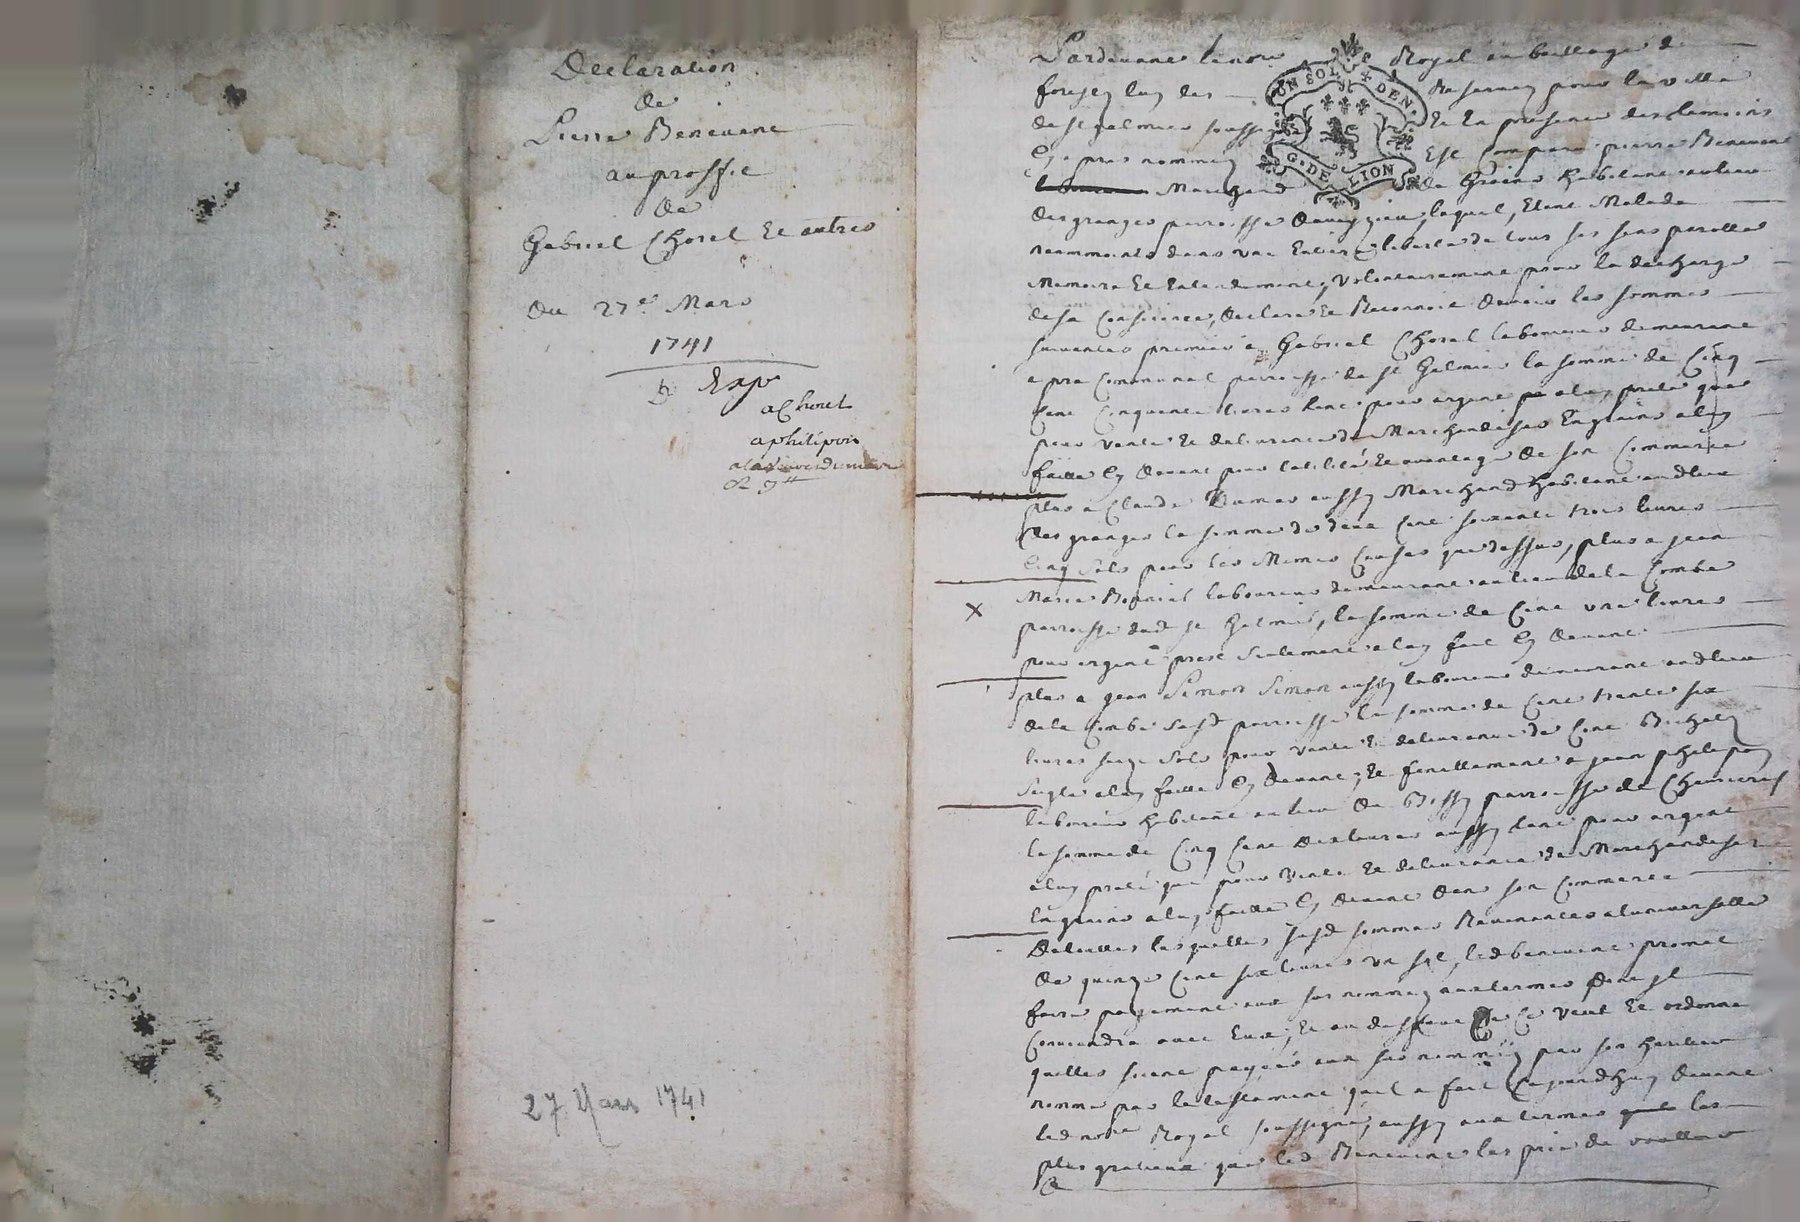 Declaration
de
Pierre Benevent
au proffit
de
Gabriel Chorel et autres
du 27e Mars
1741
Expé
a Chorel
a philipon
27 Mars 1741
Pardevant le nore Royal au bailliage de
forest les des Reservez pour la ville
de st galmier soussigné Et En presence des temoins
cy apres nommez Est Comparu pierre Benevent
Marchand de Grains habitant au lieu
des granges parroisse lequel, Etant Malade
neammoins dans une Entiere liberté de tous ses sens parolle
Memoire Et Entendement, Volontairement pour la decharge
de sa Conscience, declare Et Reconnoit devoir les sommes
suivantes premier a Gabriel Chorel laboureur demeurant
a pra Communal parroisse de st Galmier la somme de Cinq
Cent Cinquante livres tant pour argent a luy preté que
pour vente Et delivrance de Marchandises En grains a luy
faitte Cy devant pour l'utilité Et avantage de son Commerce
plus a Claude Dumas aussy Marchand habitant audlieu
des granges la somme de deux Cent soixante trois livres
Cinq sols pour les Memes Causes que dessus, plus a jean
Marie laboureur demeurant au lieu de la Combe
parroisse dud st Galmier, la somme de Cent une livres
pour argent presté seulement a luy fait Cy devant
plus a jean Simon Simon aussy laboureur demeurant audlieu
de la Combe susd parroisse la somme de Cent trente six
livres seize sols pour vente Et delivrance de Cent Bichets
seigle a luy faitte Cy devant, Et finallement a jean philipon
laboureur habitant au lieu de Bissy parroisse de
la somme de Cinq Cent livres aussy tant pour argent
a luy preté que pour Vente Et delivrance de Marchandises
En grains a luy faitte Cy devant dans son Commerce
Detoutes lesquelles susd sommes Revenantes a luniverselle
de quinze Cent six livres un sol, led benevent promet
faire payement aux sus nommez aux termes dont Jl
Conviendra avec Eux, Et au deffaut de Ce Veut Et ordonne
quelles soient payées aux sus nommez par son heritier
nommé par le testament quil a fait Cejourdhuy devant
led nore Royal soussigné, aussy aux termes les
plus gratieux que led Benevent les prie de vouloir